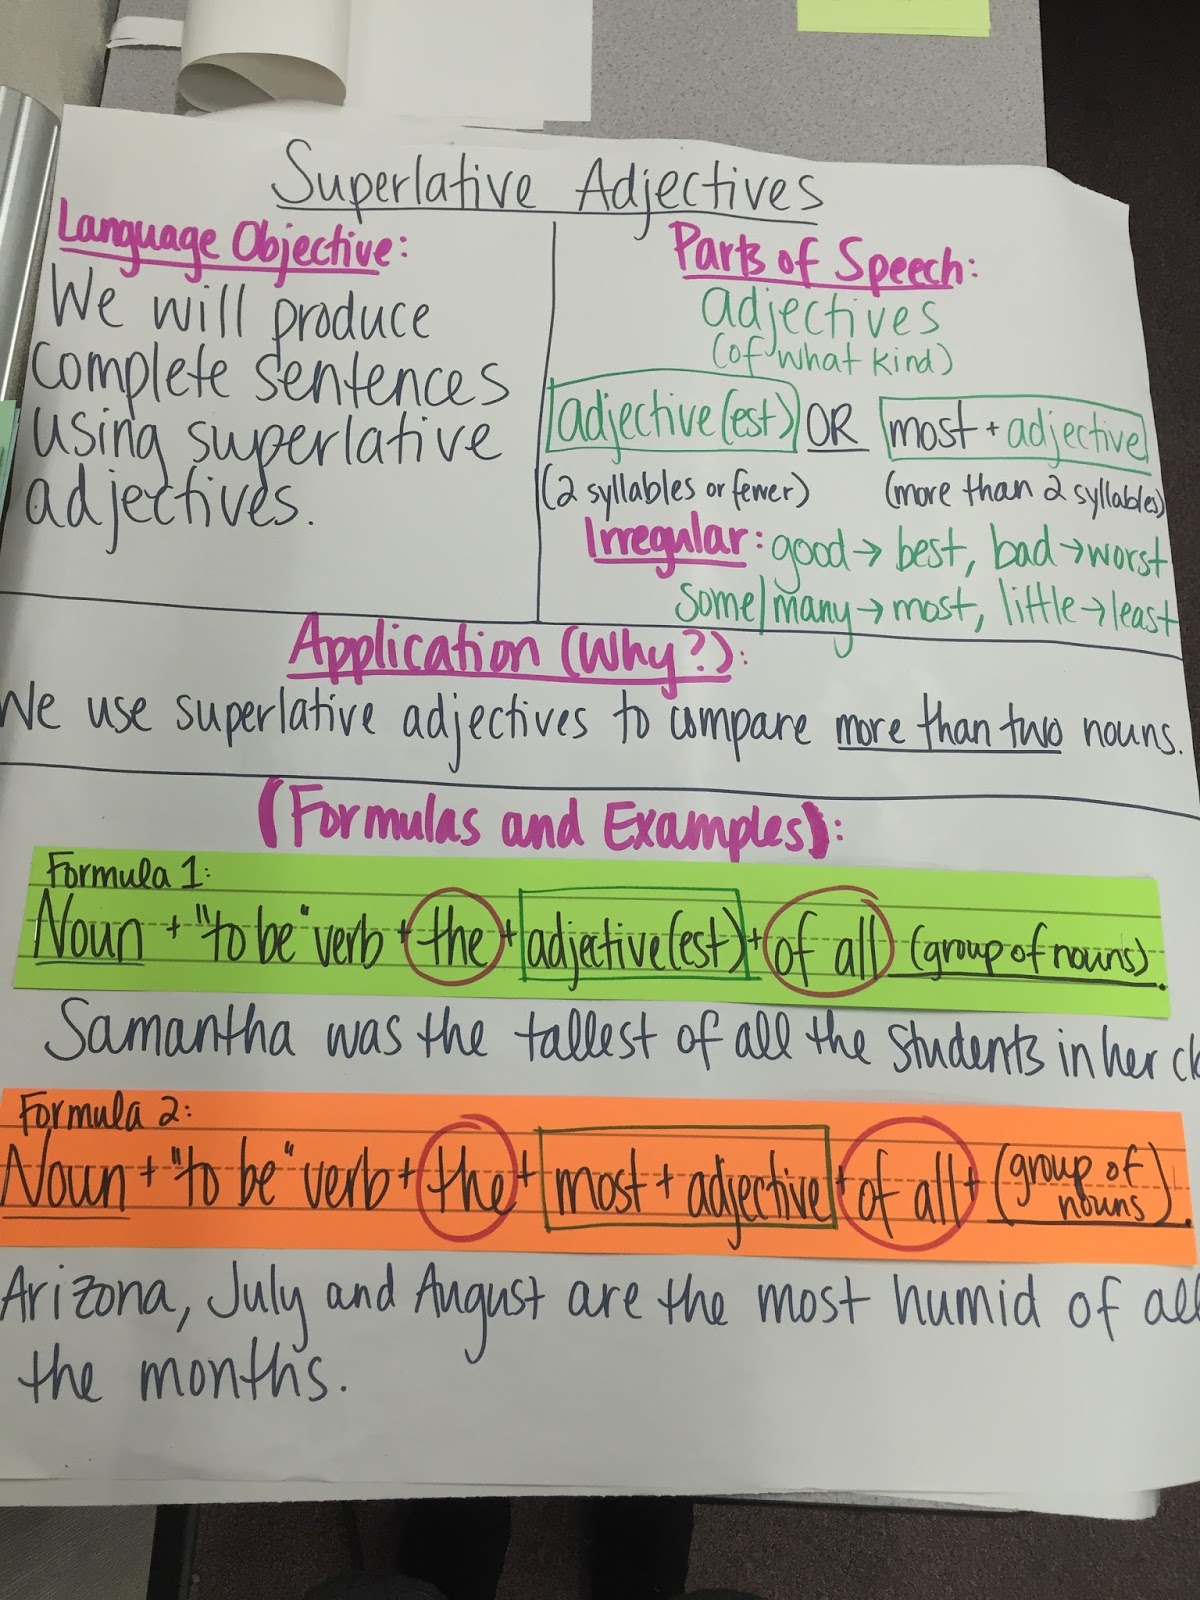 Superlative Adjectives
Language Objective:
We will produce
complete sentences
using superlative
adjectives.
Parts of Speech:
adjectives
(of what kind)
adjective(est) OR most + adjective
(2 syllables or fewer) (more than 2 syllables)
Irregular: good → best, bad → worst
some/many → most, little → least
Application (Why?):
We use superlative adjectives to compare more than two nouns.
(Formulas and Examples):
Formula 1:
Noun + "to be" verb + the + adjective(est) + of all (group of nouns).
Samantha was the tallest of all the students in her
Formula 2:
Noun + "to be" verb + the + most + adjective + of all + (group of
nouns).
Arizona, July and August are the most humid of all
the months.